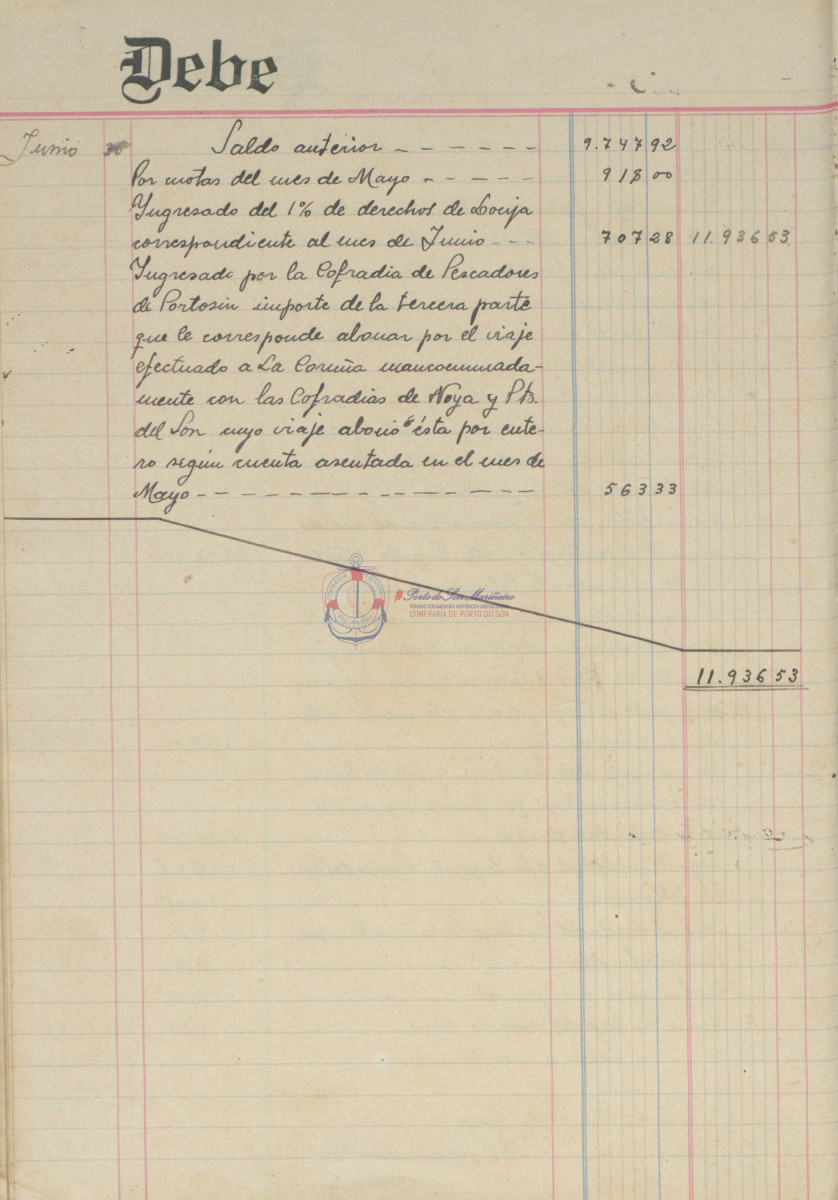 Debe
Junio 30 Saldo anterior - - - - - - 9.747 92
Por cuotas del mes de Mayo - - - - - 918 00
Yngresado del 1% de derechos de Lonja
correspondiente al mes de Junio - - - 707 28 11.936 53
Ingresado por la Cofradia de Pescadores
de Portosin importe de la tercera parte
que le corresponde abonar por el viaje
efectuado a La Coruña mancomunada-
mente con las Cofradias de Noya y Ptº.
del Son cuyo viaje abonó ésta por ente-
ro según cuenta asentada en el mes de
Mayo - - - - - - - - - - - - - 563 33
#Porto do Son Mariñeiro
FONDOS DOCUMENTAIS HISTÓRICOS DIXITALIZADOS
CONFRARÍA DE PORTO DO SON
11.936 53